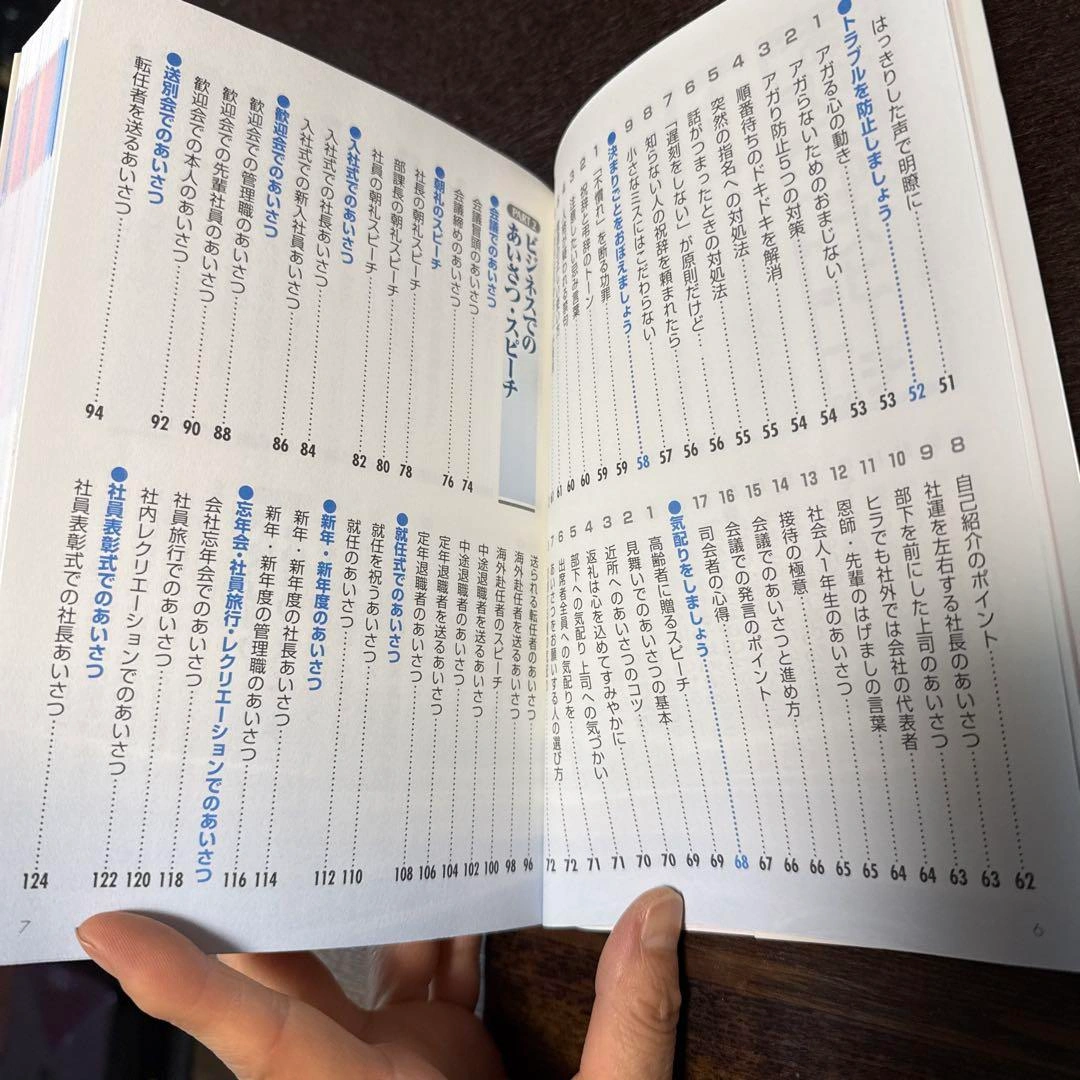 はっきりした声で明瞭に 51
●トラブルを防止しましょう 52
1 アガる心の動き 53
2 アガらないためのおまじない 53
3 アガり防止5つの対策 54
4 順番待ちのドキドキを解消 54
5 突然の指名への対処法 55
6 話がつまったときの対処法 55
7 「遅刻をしない」が原則だけど 56
8 知らない人の祝辞を頼まれたら 56
9 小さなミスにはこだわらない 57
●決まりごとをおぼえましょう 58
1 「不慣れ」を断る功罪 59
2 祝辞と弔辞のトーン 59
3 注意したい忌み言葉 60
4 人格が疑われる禁句 60
61
8 自己紹介のポイント 62
9 社運を左右する社長のあいさつ 63
10 部下を前にした上司のあいさつ 63
11 ヒラでも社外では会社の代表者 64
12 恩師・先輩のはげましの言葉 64
13 社会人1年生のあいさつ 65
14 接待の極意 65
15 会議でのあいさつと進め方 66
16 会議での発言のポイント 66
17 司会者の心得 67
●気配りをしましょう 68
1 高齢者に贈るスピーチ 69
2 見舞いでのあいさつの基本 69
3 近所へのあいさつのコツ 70
4 返礼は心を込めてすみやかに 70
5 部下への気配り 上司への気づかい 71
6 出席者全員への気配りを 71
7 あいさつをお願いする人の選び方 72
72
6
PART 2 ビジネスでの
あいさつ・スピーチ
●会議でのあいさつ
会議冒頭のあいさつ 74
会議締めのあいさつ 76
●朝礼のスピーチ
社長の朝礼スピーチ 78
部課長の朝礼スピーチ 80
社員の朝礼スピーチ 82
●入社式でのあいさつ
入社式での社長あいさつ 84
入社式での新入社員あいさつ 86
●歓迎会でのあいさつ
歓迎会での管理職のあいさつ 88
歓迎会での先輩社員のあいさつ 90
歓迎会での本人のあいさつ 92
●送別会でのあいさつ
転任者を送るあいさつ 94
送られる転任者のあいさつ 96
海外赴任者を送るあいさつ 98
海外赴任者のスピーチ 100
中途退職者を送るあいさつ 102
中途退職者のあいさつ 104
定年退職者を送るあいさつ 106
定年退職者のあいさつ 108
●就任式でのあいさつ
就任を祝うあいさつ 110
就任のあいさつ 112
●新年・新年度のあいさつ
新年・新年度の社長あいさつ 114
新年・新年度の管理職のあいさつ 116
●忘年会・社員旅行・レクリエーションでのあいさつ
会社忘年会でのあいさつ 118
社員旅行でのあいさつ 120
社内レクリエーションでのあいさつ 122
●社員表彰式でのあいさつ
社員表彰式での社長あいさつ 124
7